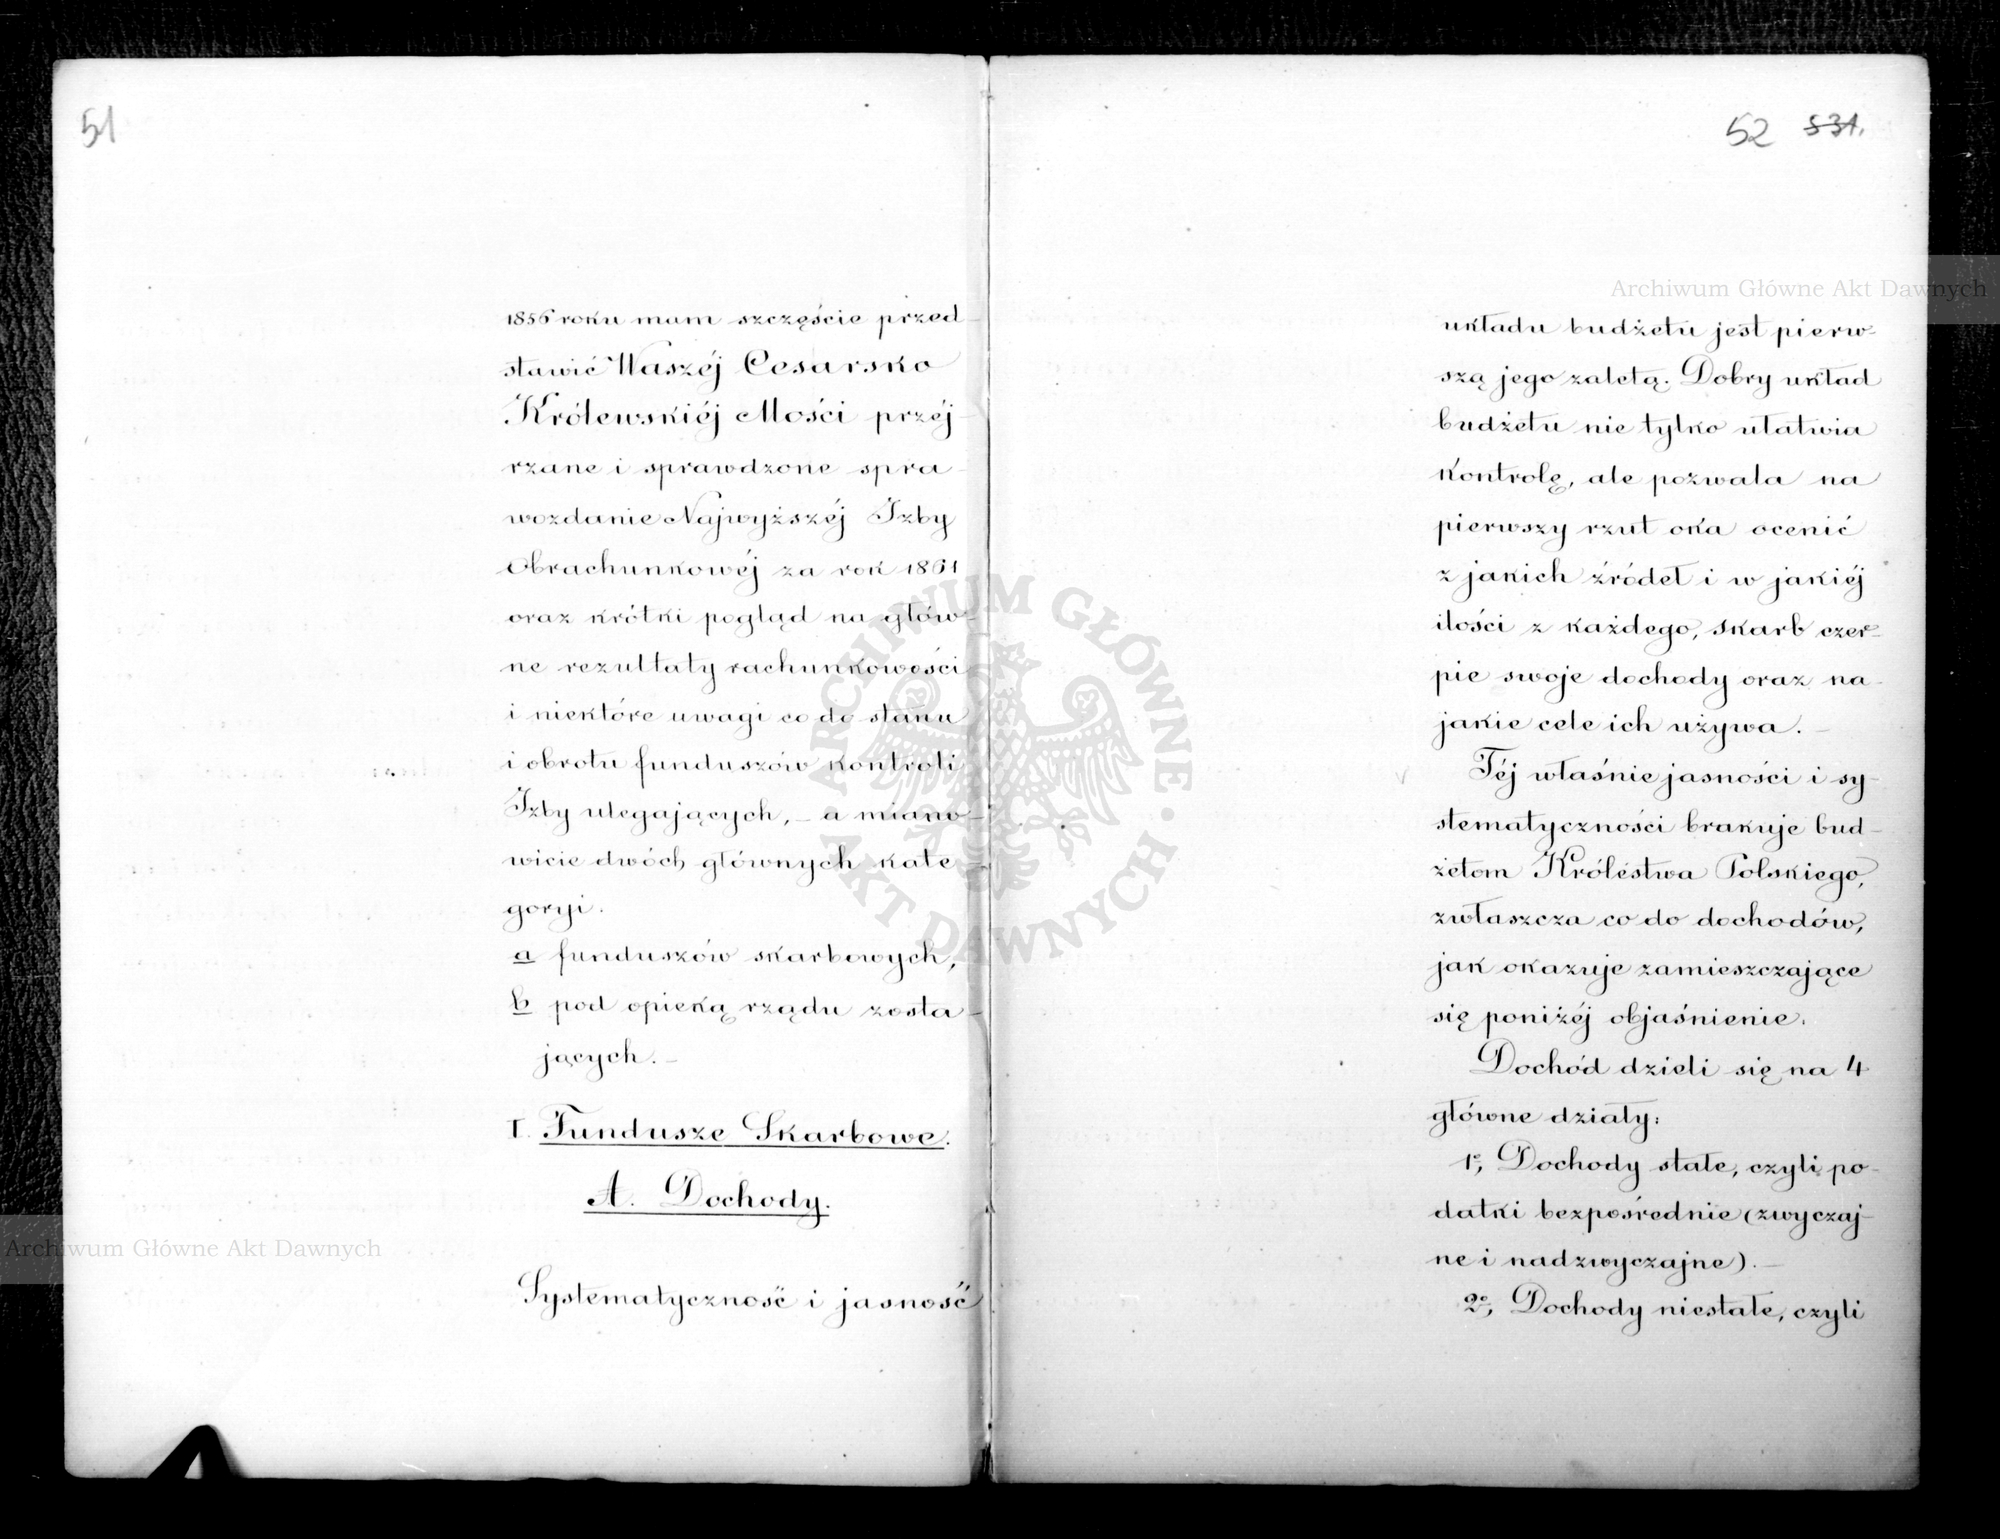 51
1856 roku mam szczęście przed-
stawić Waszéj Cesarsko
Królewskiéj Mości przéj-
rzane i sprawdzone spra-
wozdanie Najwyższéj Izby
Obrachunkowéj za rok 1861
oraz krótki pogląd na głów-
ne rezultaty rachunkowości
i niektóre uwagi co do stanu
i obrotu funduszów kontroli
Izby ulegających, – a miano-
wicie dwóch głównych kate-
goryi.
a funduszów skarbowych,
b pod opieką rządu zosta-
jących. –
I. Fundusze Skarbowe.
A. Dochody.
Systematyczność i jasność
52 531.
układu budżetu jest pierw-
szą jego zaletą. Dobry układ
budżetu nie tylko ułatwia
kontrolę, ale pozwala na
pierwszy rzut oka ocenić
z jakich źródeł i w jakiéj
ilości z każdego, skarb czer-
pie swoje dochody oraz na-
jakie cele ich używa. –
Téj właśnie jasności i sy-
stematyczności brakuje bud-
żetom Królestwa Polskiego,
zwłaszcza co do dochodów,
jak okazuje zamieszczające
się poniżéj objaśnienie.
Dochód dzieli się na 4
główne działy:
1º, Dochody stałe, czyli po-
datki bezpośrednie (zwyczaj-
ne i nadzwyczajne). –
2º, Dochody niestałe, czyli
Archiwum Główne Akt Dawnych
Archiwum Główne Akt Dawnych
ARCHIWUM GŁÓWNE · AKT DAWNYCH ·